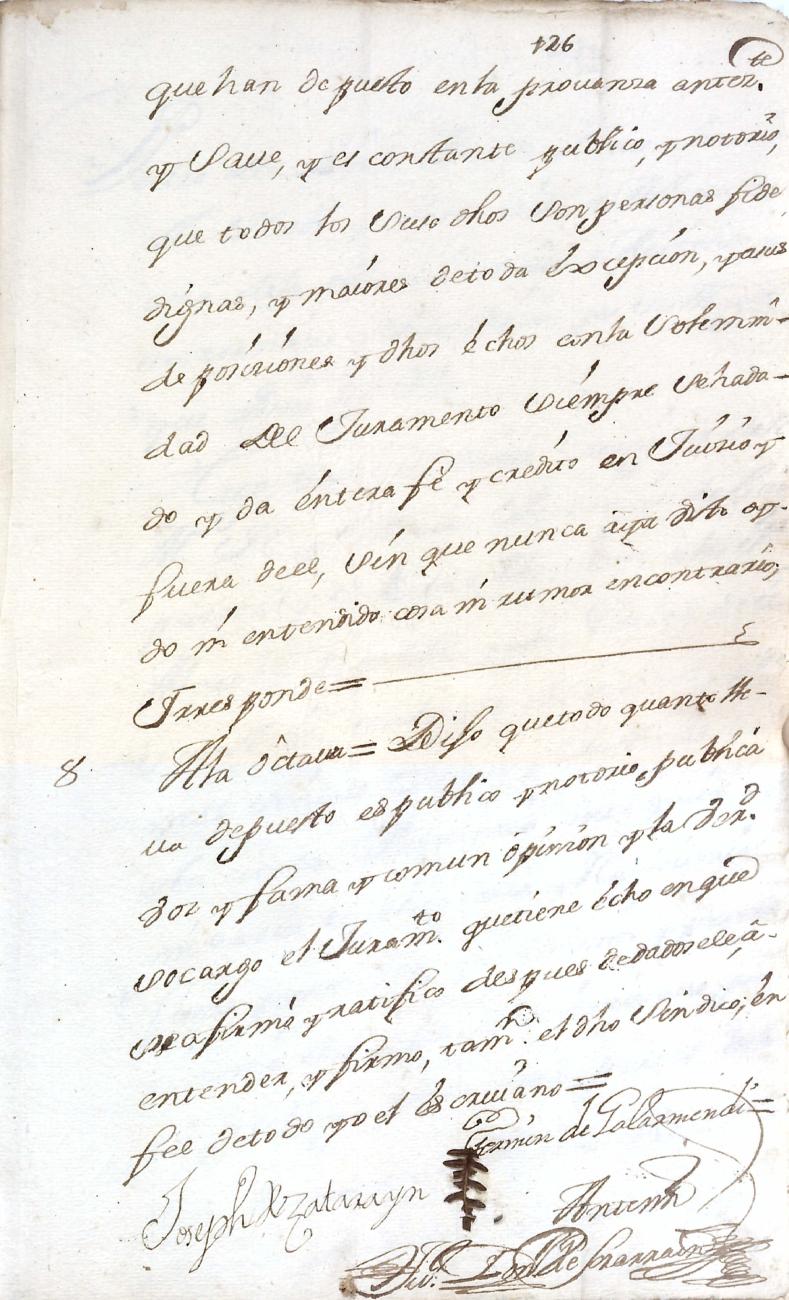 126
que han depuesto en la provanza anter.te
y Save, y es constante publico, y notorio,
que todos los Suso dhos Son personas fide
dignas, y maiores de toda éxcepcion, y asus
deposiciones y dhos échos con la Solemni-
dad del Juramento Siempre Sehada-
do y da éntera fe y credito en Juicio y
fuera deel, Sin que nunca aya dito oy-
do ni entendido cosa ni rumor encontrario,
Yrresponde=
8 A la Octava= Dijo que todo quanto lle-
va depuesto es publico y notorio, publica
voz y fama y comun ópinion y la Ver.d
So cargo el Juram.to que tiene écho en que
Se afirmó y ratifico despues dedadosele á
entender, y firmo, tam.n el dho Sindico, én
fee de todo yo el Escrivano=
Fermin de Galarmendi=
Joseph de Zatarayn
Antemi